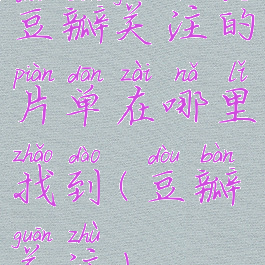 豆瓣关注的
piàn dān zài nǎ lǐ
片单在哪里
zhǎo dào dòu bàn
找到(豆瓣
guān zhù
关注)